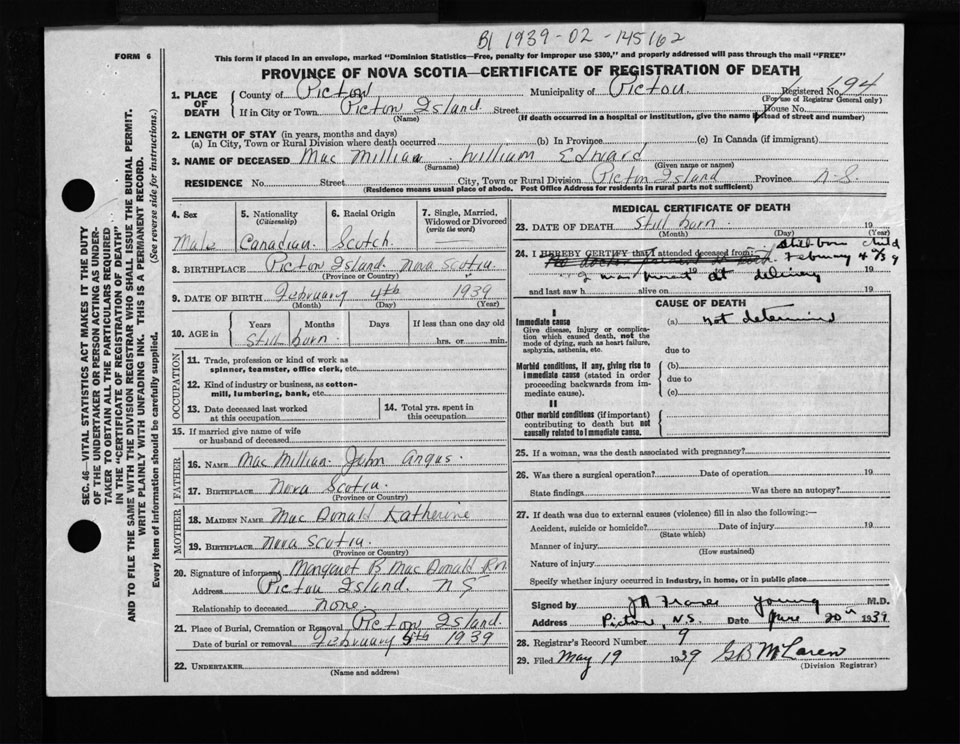 B1 1939-02-145162
FORM 6
This form if placed in an envelope, marked "Dominion Statistics—Free, penalty for improper use $300," and properly addressed will pass through the mail "FREE"
PROVINCE OF NOVA SCOTIA—CERTIFICATE OF REGISTRATION OF DEATH
1. PLACE OF DEATH County of Pictou Municipality of Pictou Registered No. 194
(For use of Registrar General only)
If in City or Town Pictou Island Street House No.
(Name) (If death occurred in a hospital or institution, give the name instead of street and number)
2. LENGTH OF STAY (in years, months and days)
(a) In City, Town or Rural Division where death occurred (b) In Province (c) In Canada (if immigrant)
3. NAME OF DECEASED Mac Millian William Edward
(Surname) (Given name or names)
RESIDENCE No. Street City, Town or Rural Division Pictou Island Province N-S.
(Residence means usual place of abode. Post Office Address for residents in rural parts not sufficient)
4. Sex 5. Nationality (Citizenship) 6. Racial Origin 7. Single, Married, Widowed or Divorced (write the word)
Male Canadian. Scotch.
8. BIRTHPLACE Pictou Island Nova Scotia.
(Province or Country)
9. DATE OF BIRTH February 4th 1939
(Month) (Day) (Year)
10. AGE in Years Months Days If less than one day old
Still born hrs. or min.
OCCUPATION
11. Trade, profession or kind of work as spinner, teamster, office clerk, etc.
12. Kind of industry or business, as cotton-mill, lumbering, bank, etc.
13. Date deceased last worked at this occupation
14. Total yrs. spent in this occupation
15. If married give name of wife or husband of deceased
FATHER
16. NAME Mac Millian John Angus.
17. BIRTHPLACE Nova Scotia.
(Province or Country)
MOTHER
18. MAIDEN NAME Mac Donald Katherine
19. BIRTHPLACE Nova Scotia.
(Province or Country)
20. Signature of informant Margaret B. Mac Donald RN
Address Pictou Island. N S
Relationship to deceased None.
21. Place of Burial, Cremation or Removal Pictou Island.
Date of burial or removal February 5th 1939
22. UNDERTAKER
(Name and address)
MEDICAL CERTIFICATE OF DEATH
23. DATE OF DEATH Still born. 19
(Month) (Day) (Year)
24. I HEREBY CERTIFY that I attended deceased from:— Still-born child
February 4th/39
at delivery 19
and last saw h alive on 19
CAUSE OF DEATH
I
Immediate cause
Give disease, injury or complication which caused death, not the mode of dying, such as heart failure, asphyxia, asthenia, etc.
(a) not determined
due to
Morbid conditions, if any, giving rise to immediate cause (stated in order proceeding backwards from immediate cause).
(b)
due to
(c)
II
Other morbid conditions (if important) contributing to death but not causally related to immediate cause.
25. If a woman, was the death associated with pregnancy?
26. Was there a surgical operation? Date of operation 19
State findings Was there an autopsy?
27. If death was due to external causes (violence) fill in also the following:—
Accident, suicide or homicide? Date of injury 19
(State which)
Manner of injury
(How sustained)
Nature of injury
Specify whether injury occurred in industry, in home, or in public place
Signed by Young M.D.
Address Pictou, N.S. Date June 20th 1939
28. Registrar's Record Number 9
29. Filed May 19 1939 G B McLaren
(Division Registrar)
SEC. 46—VITAL STATISTICS ACT MAKES IT THE DUTY
OF THE UNDERTAKER OR PERSON ACTING AS UNDER-
TAKER TO OBTAIN ALL THE PARTICULARS REQUIRED
IN THE "CERTIFICATE OF REGISTRATION OF DEATH"
AND TO FILE THE SAME WITH THE DIVISION REGISTRAR WHO SHALL ISSUE THE BURIAL PERMIT.
WRITE PLAINLY WITH UNFADING INK. THIS IS A PERMANENT RECORD.
Every item of information should be carefully supplied. (See reverse side for instructions.)